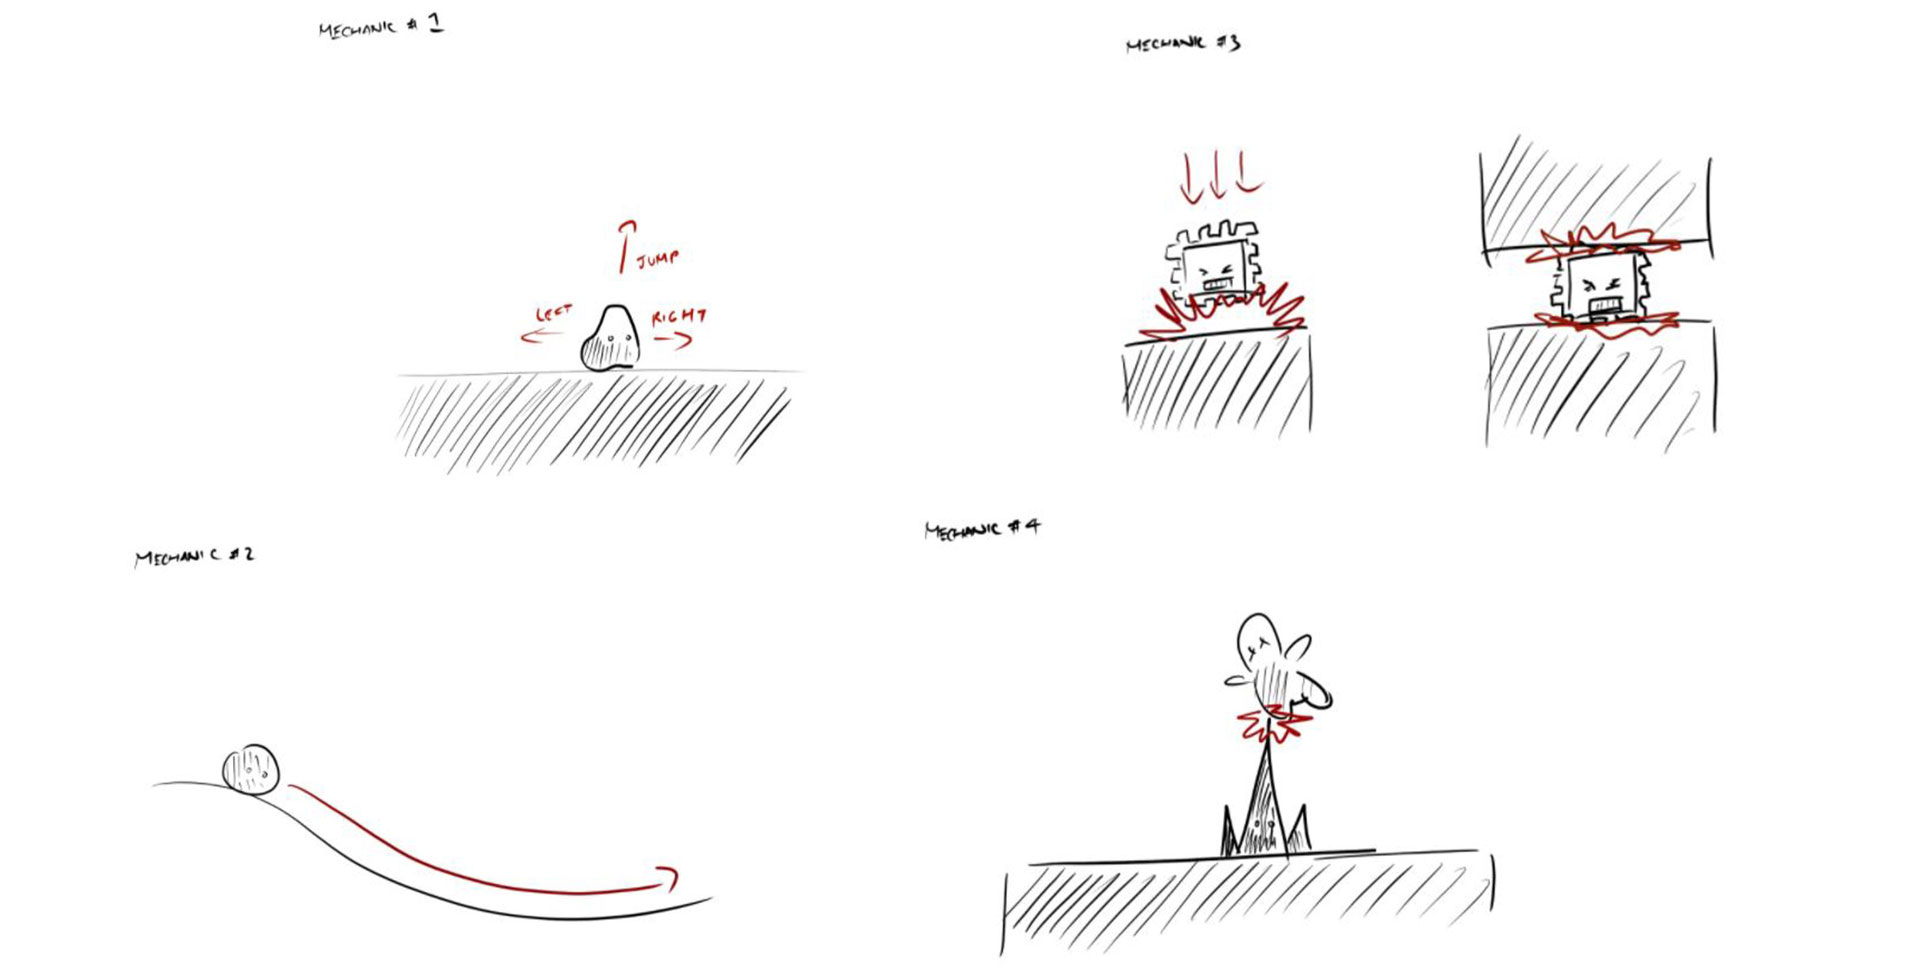 MECHANIC # 1
JUMP
LEFT
RIGHT
MECHANIC #2
MECHANIC #3
MECHANIC #4